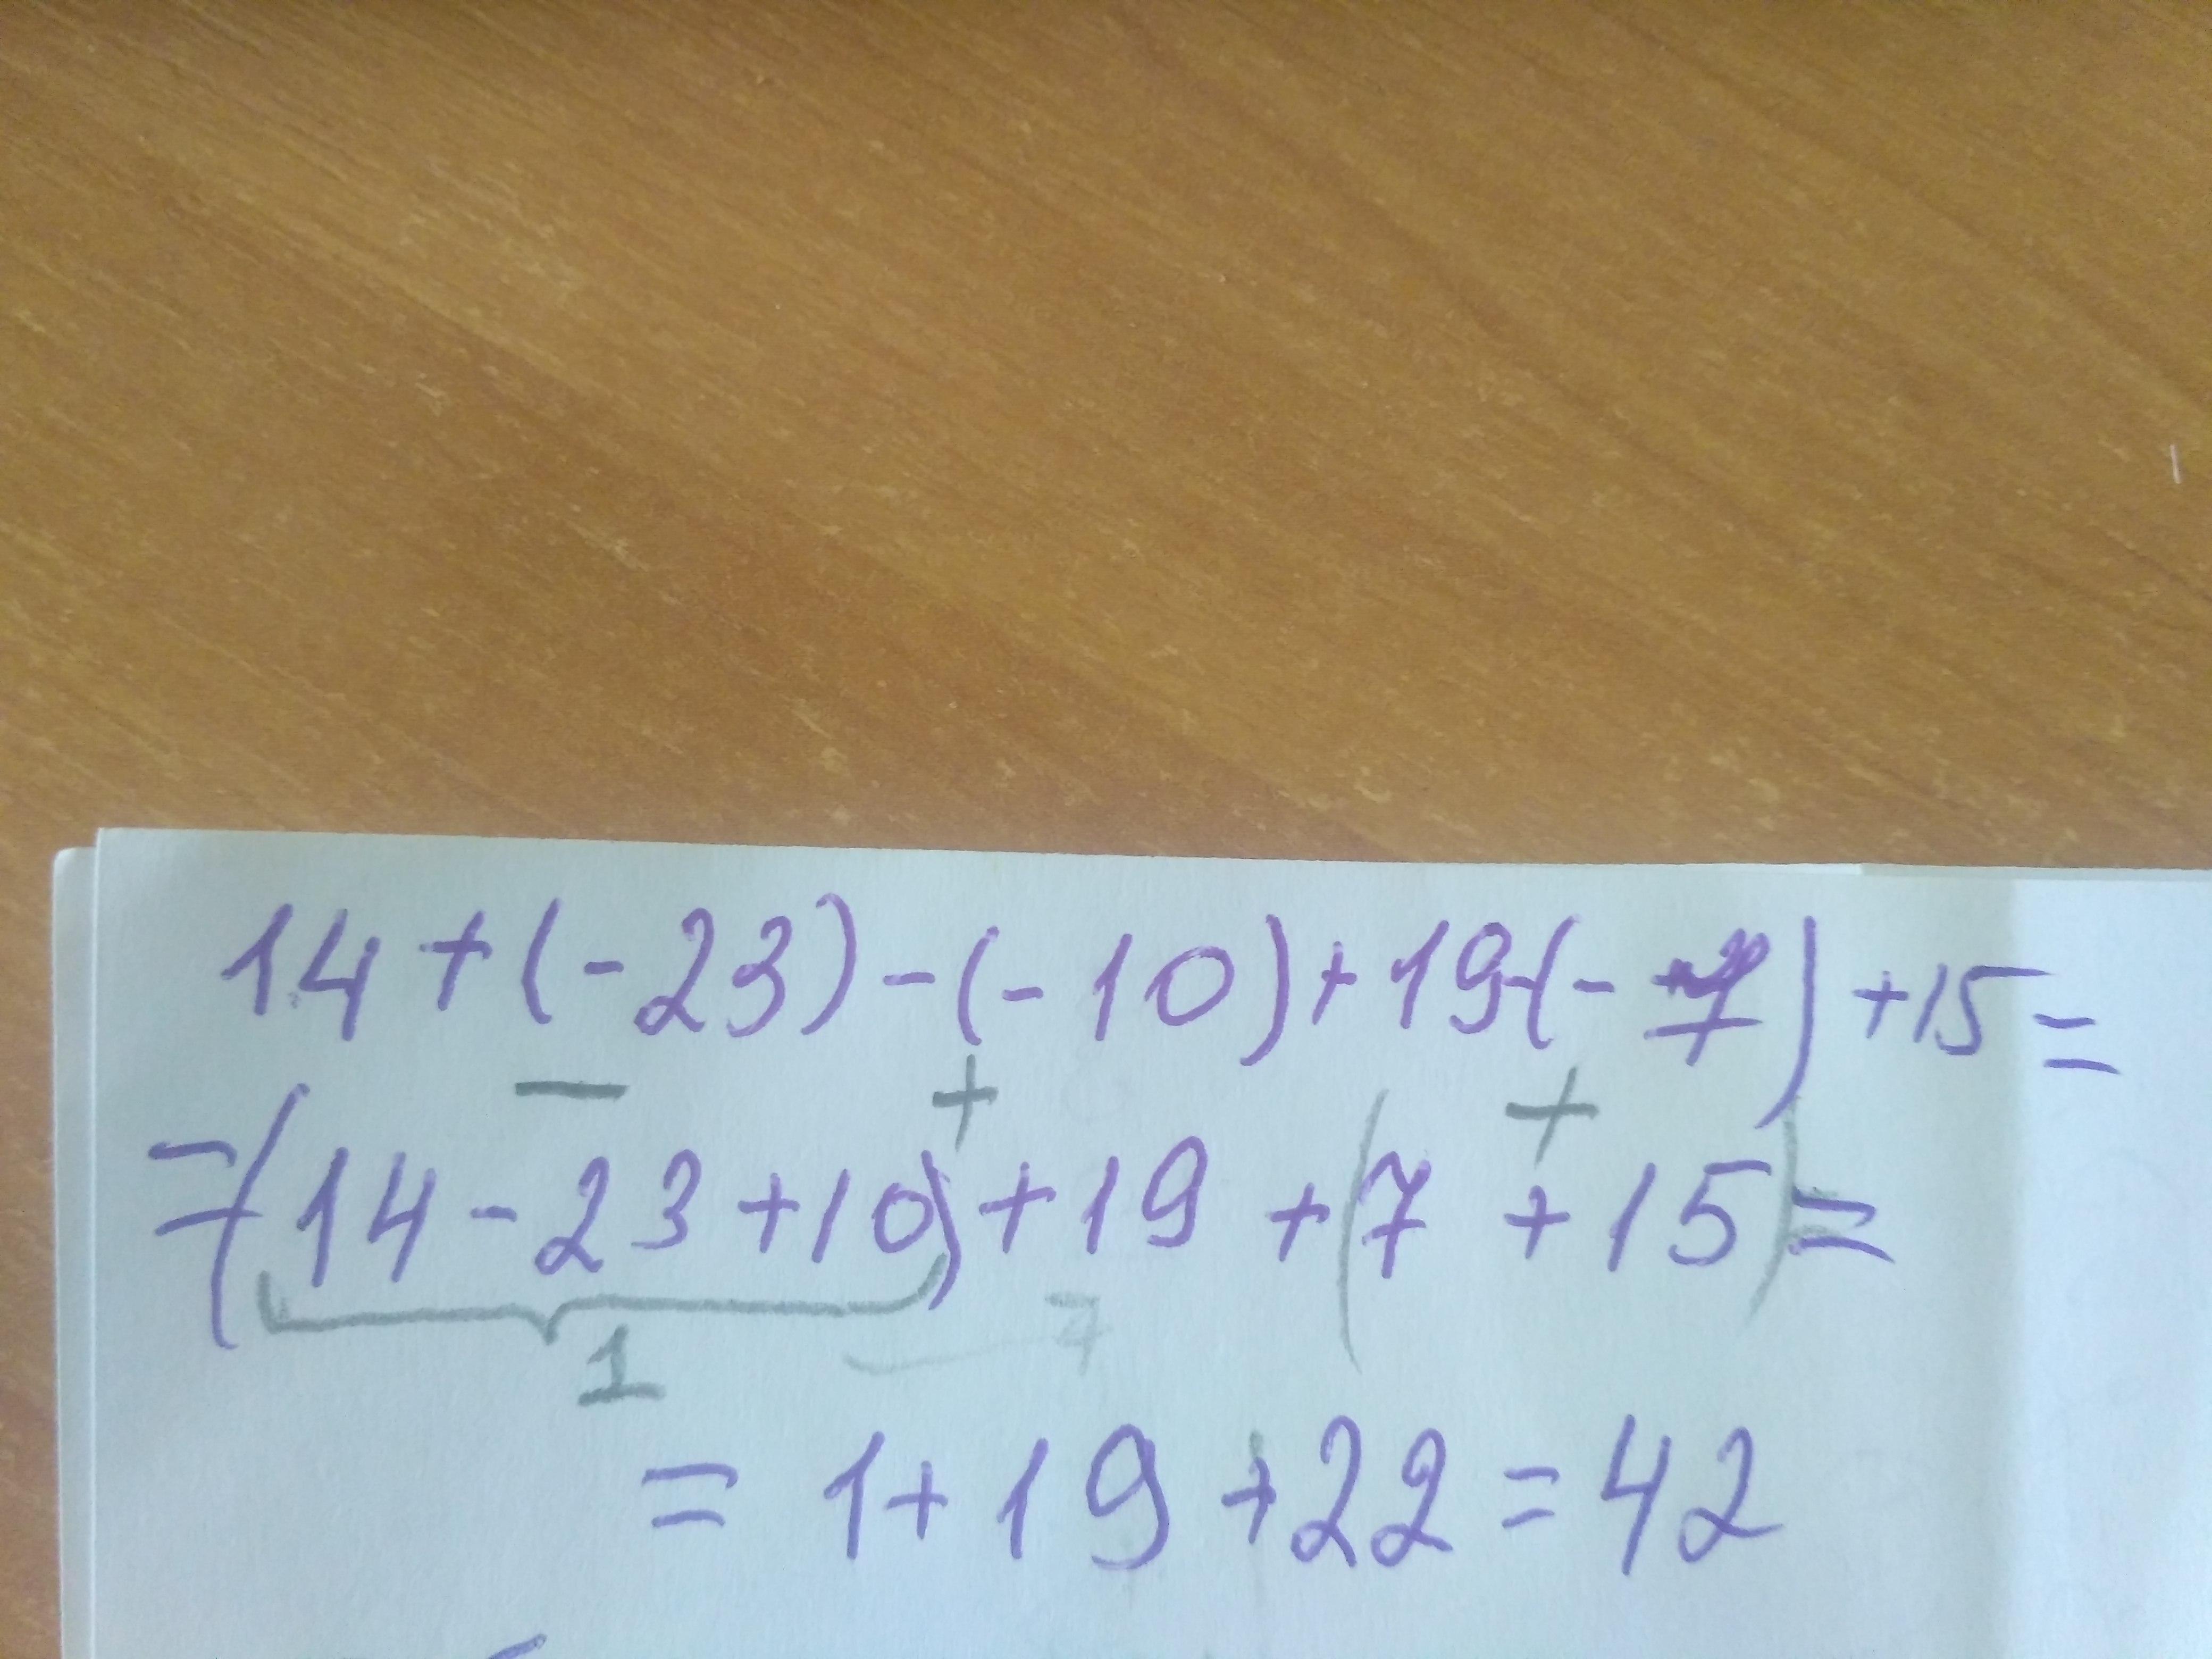 14+(-23)-(-10)+19-(-7)+15=
- + +
=(14-23+10)+19+(7+15)=
1 7
=1+19+22=42